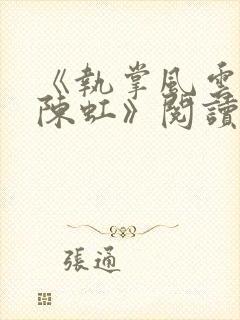 《執掌風雲
陳虹》閱讀
張通